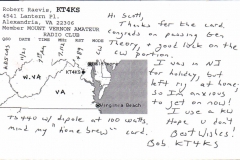 Robert Raevis, KT4KS
4541 Lantern Pl.
Alexandria, VA 22306
Member MOUNT VERNON AMATEUR
RADIO CLUB
Hi Scott,
Thanks for the card,
congrats on passing Gen
Theory, & good luck on the
CW portion.
I was in NJ
for holiday, but
left my rig at home
so I'm anxious
to get on now!
I use a KW
Hope u don't
mind my "home brew" card.
Best Wishes!
Bob KT4KS
KT4KS
W.VA
VA
Virginia Beach
TS440 w/ dipole at 100 watts.